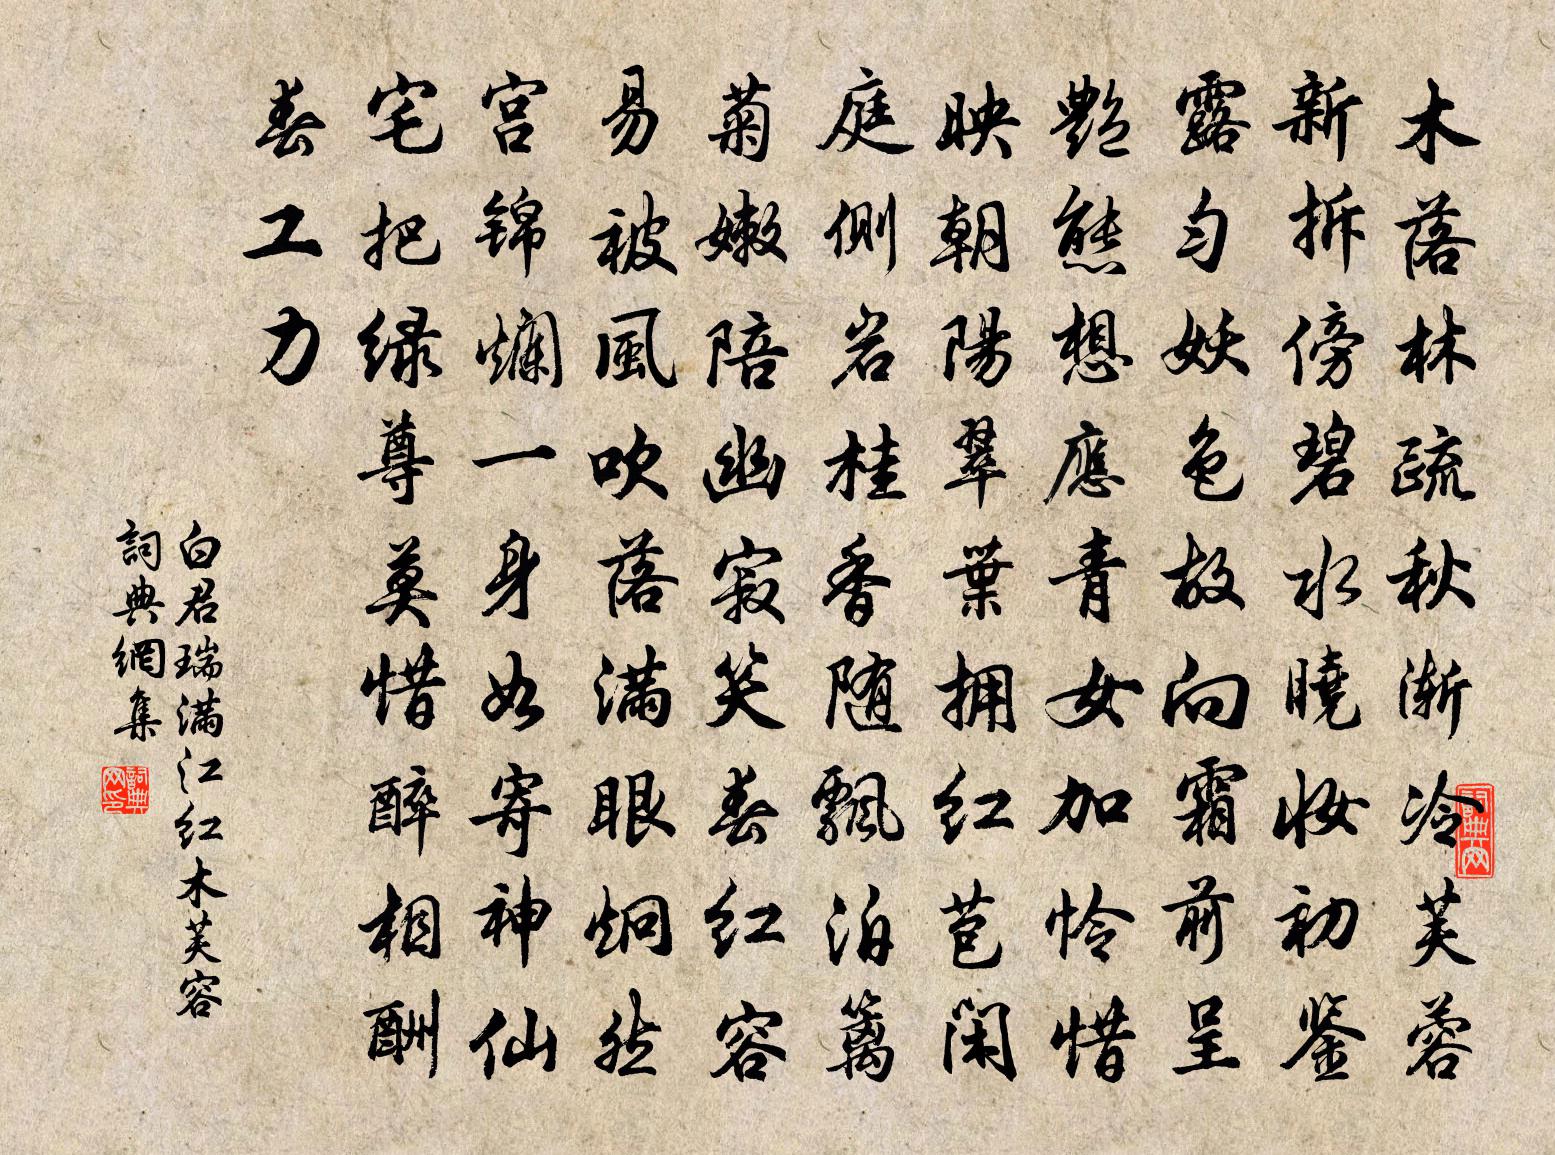 木落林疏秋渐冷芙蓉
新拆傍碧水曉妝初鉴
露匀妖色故向霜前呈
艷態想應青女加怜惜
映朝陽翠葉拥红苞闲
庭側岩桂香随飄泊篱
菊嫩陪幽寂笑春红容
易被風吹落满眼炯然
宫锦爛一身如寄神仙
宅把绿尊莫惜醉相酬
春工力
白君瑞满江红木芙容
詞典網集
詞典网